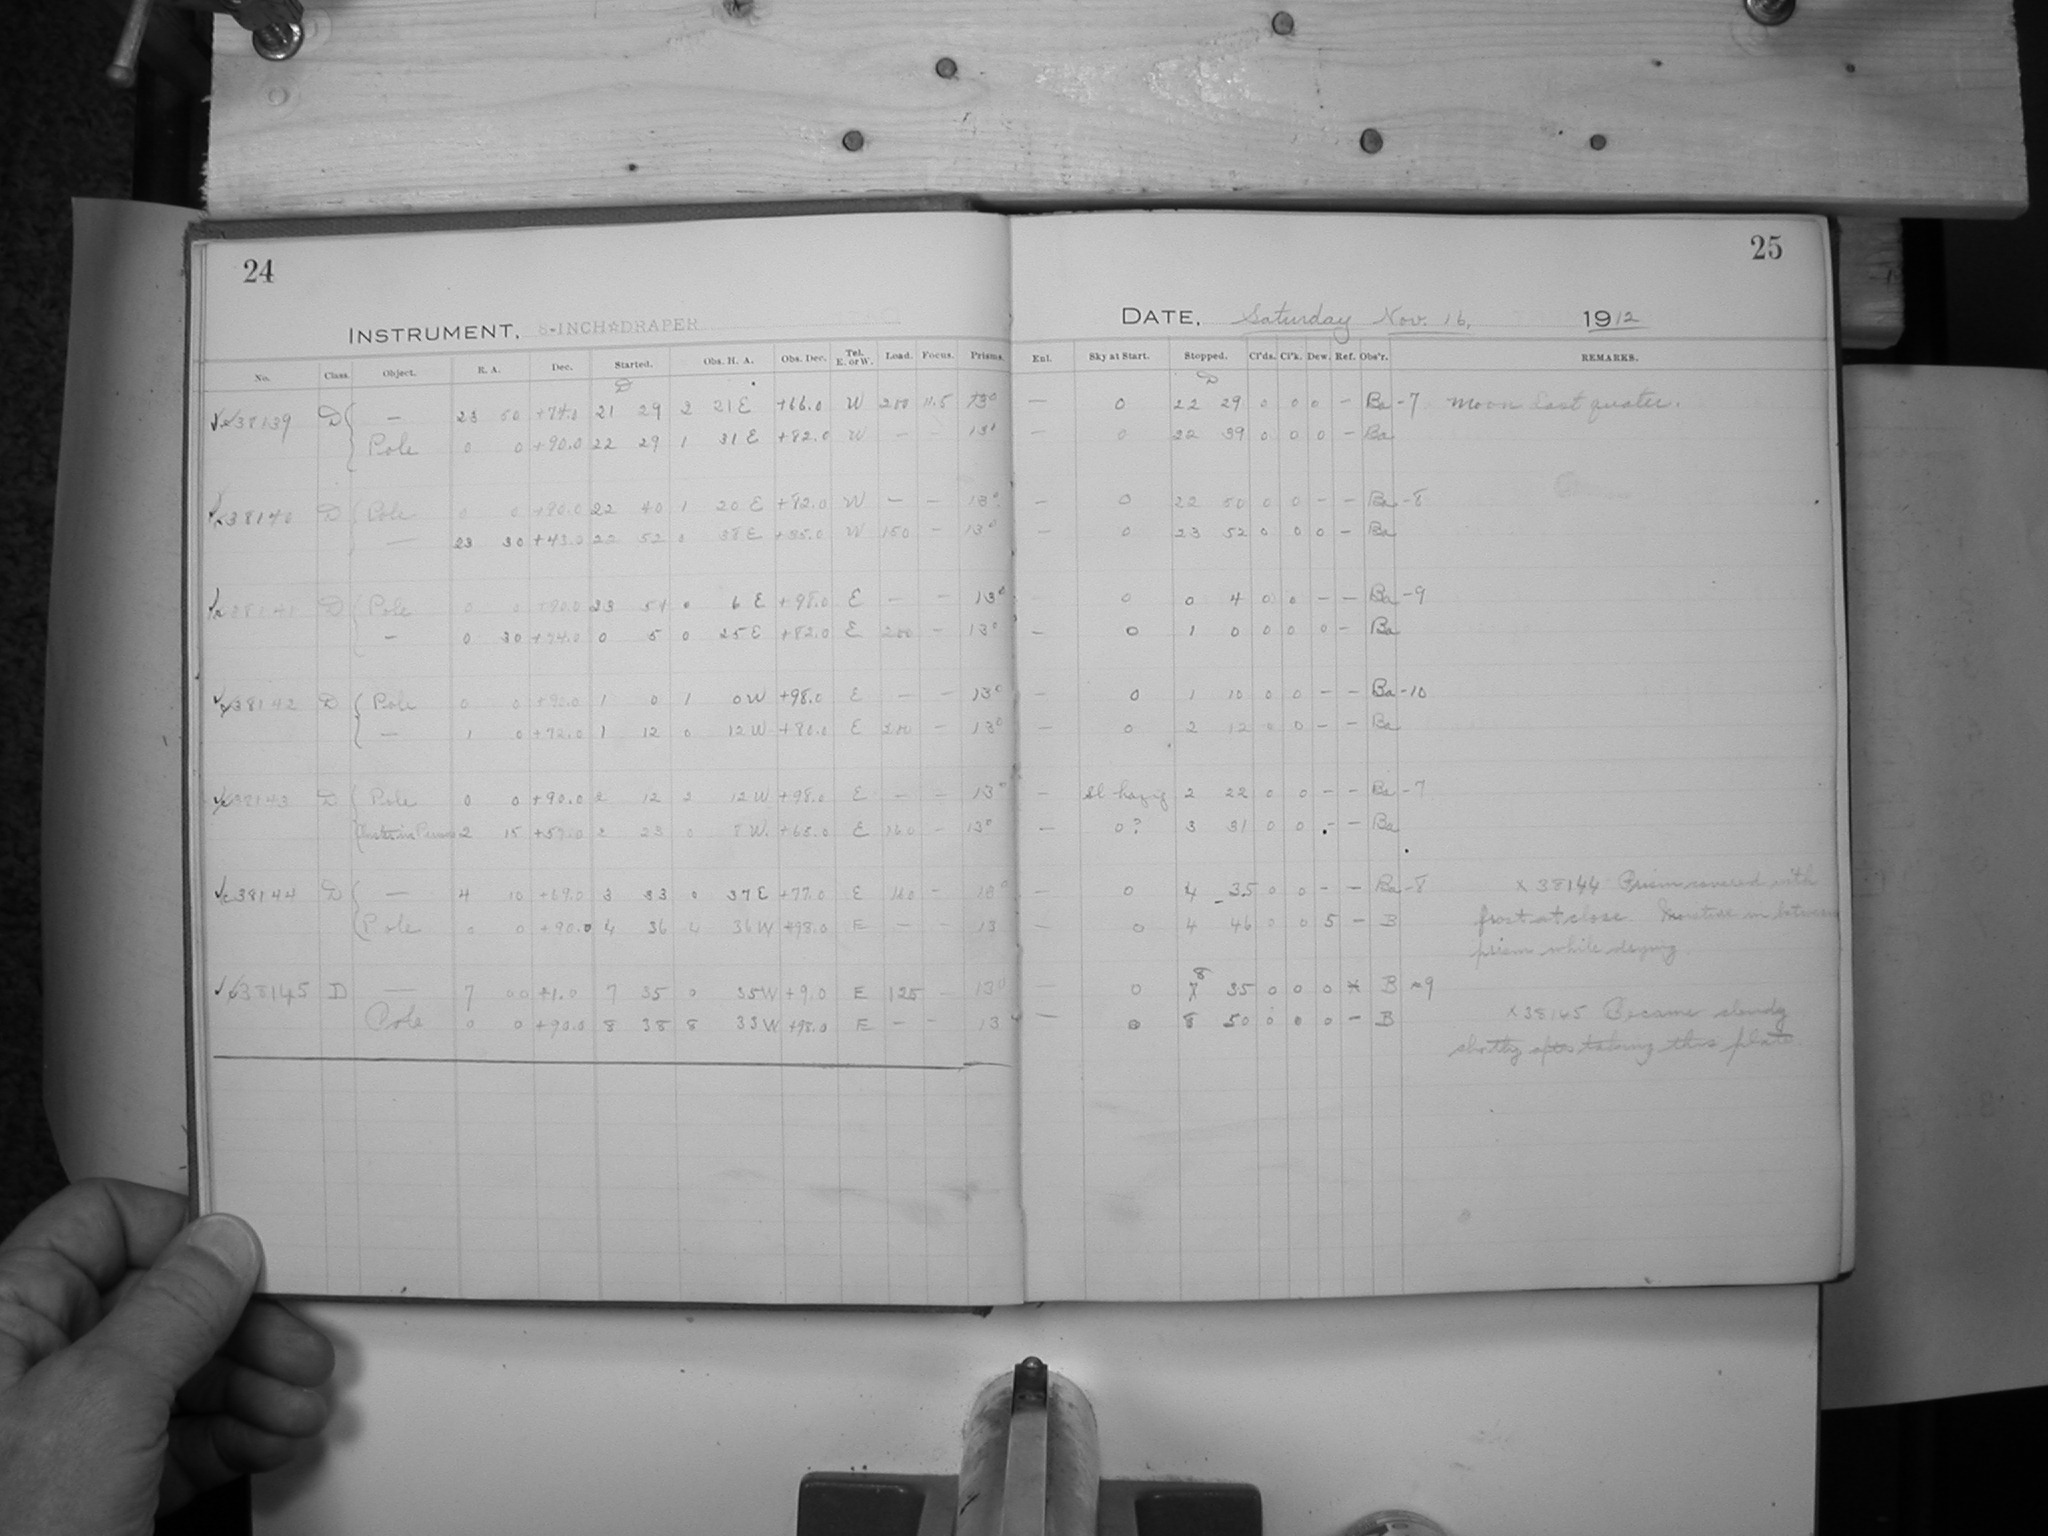 24
INSTRUMENT, 8-INCH☆DRAPER
No. Class. Object. R. A. Dec. Started. Obs. H. A. Obs. Dec. Tel. E. or W. Load. Focus. Prisms.
D
38139 D — 23 50 +74.0 21 29 2 21 E +66.0 W 200 11.5 13°
Pole 0 0 +90.0 22 29 1 31 E +82.0 W — — 13°
38140 D Pole 0 0 +90.0 22 40 1 20 E +82.0 W — — 13°
— 23 30 +43.0 22 52 0 38 E +35.0 W 150 — 13°
38141 D Pole 0 0 +90.0 23 54 0 6 E +98.0 E — — 13°
— 0 30 +74.0 0 5 0 25 E +82.0 E 200 — 13°
38142 D Pole 0 0 +90.0 1 0 1 0 W +98.0 E — — 13°
— 1 0 +72.0 1 12 0 12 W +80.0 E 200 — 13°
38143 D Pole 0 0 +90.0 2 12 2 12 W +98.0 E — — 13°
2 15 2 23 0 8 W. E 160 — 13°
38144 D — 4 10 +69.0 3 33 0 37 E +77.0 E 160 — 13°
Pole 0 0 +90.0 4 36 4 36 W +98.0 E — — 13
38145 D — 7 00 +1.0 7 35 0 35 W +9.0 E 125 — 13°
Pole 0 0 +90.0 8 38 8 33 W +98.0 E — — 13
25
DATE, Saturday Nov. 16, 1912
Enl. Sky at Start. Stopped. Cl'ds. Cl'k. Dew. Ref. Obs'r. REMARKS.
D
— 0 22 29 0 0 0 — Ba -7 Moon Last quater.
— 0 22 39 0 0 0 — Ba
— 0 22 50 0 0 — — Ba -8
— 0 23 52 0 0 0 — Ba
0 0 4 0 0 — — Ba -9
— 0 1 0 0 0 0 — Ba
— 0 1 10 0 0 — — Ba -10
— 0 2 12 0 0 — — Ba
— Sl hazy 2 22 0 0 — — Ba -7
— 0? 3 31 0 0 — — Ba
— 0 4 35 0 0 — — Ba -8 x 38144 Prism covered with
frost at close. Moisture in between
— 0 4 46 0 0 5 — B
prism while drying
8
— 0 7 35 0 0 0 x B -9
x 38145 Became cloudy
— 0 8 50 0 0 0 — B
shortly after taking this plate.